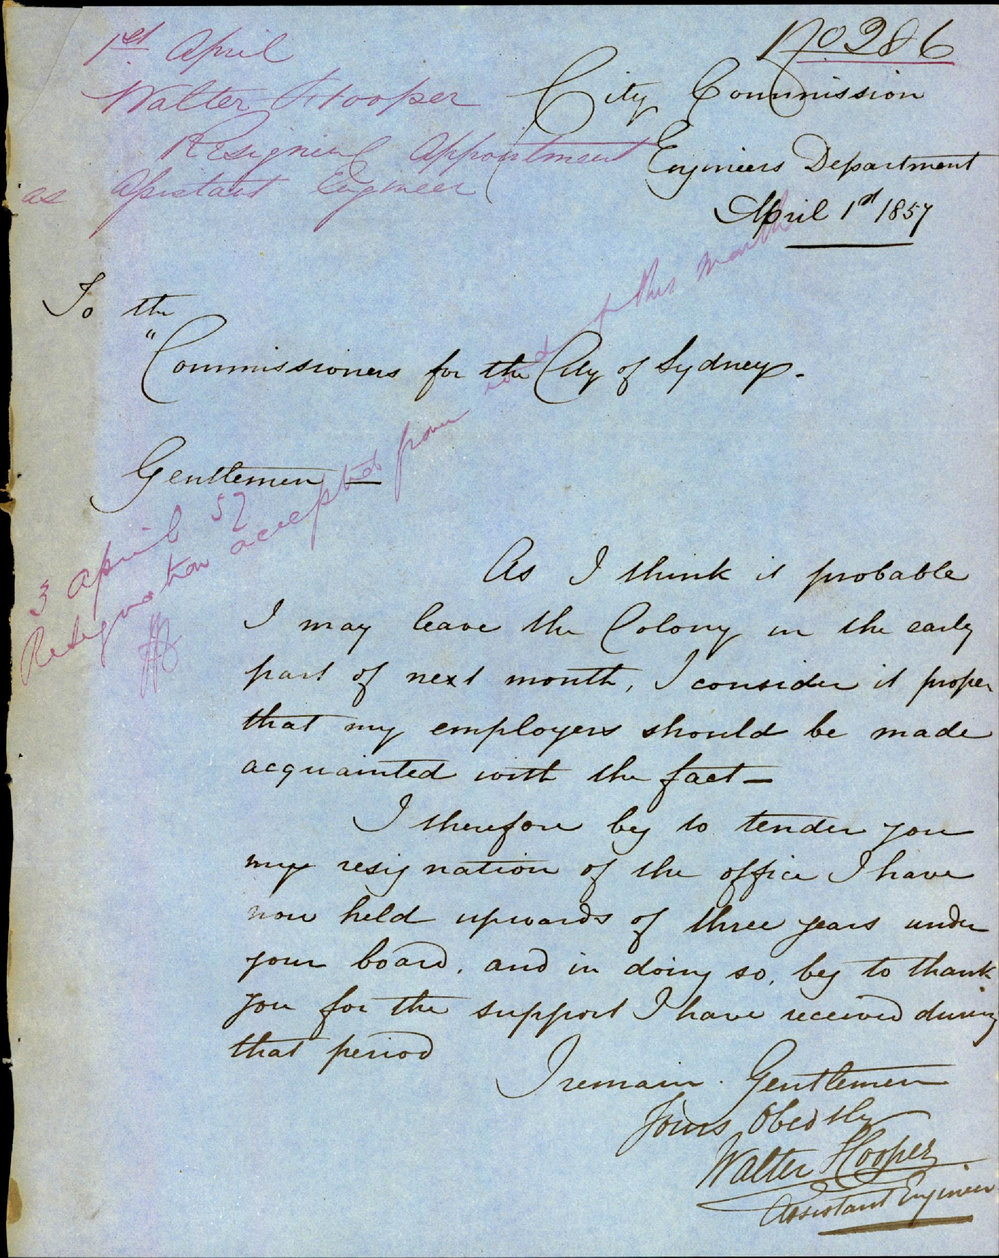 1st April
Walter Hooper
Resigning Appointment
as Assistant Engineer
No 286
City Commission
Engineers Department
April 1st 1857
To the
"Commissioners for the City of Sydney.
Gentlemen
3 April 57
Resignation accepted from end of this month
As I think it probable
I may leave the Colony in the early
part of next month, I consider it proper
that my employers should be made
acquainted with the fact —
I therefore beg to tender you
my resignation of the office I have
now held upwards of three years under
your board, and in doing so, beg to thank
you for the support I have received during
that period
I remain Gentlemen
Yours Obedtly
Walter Hooper
Assistant Engineer